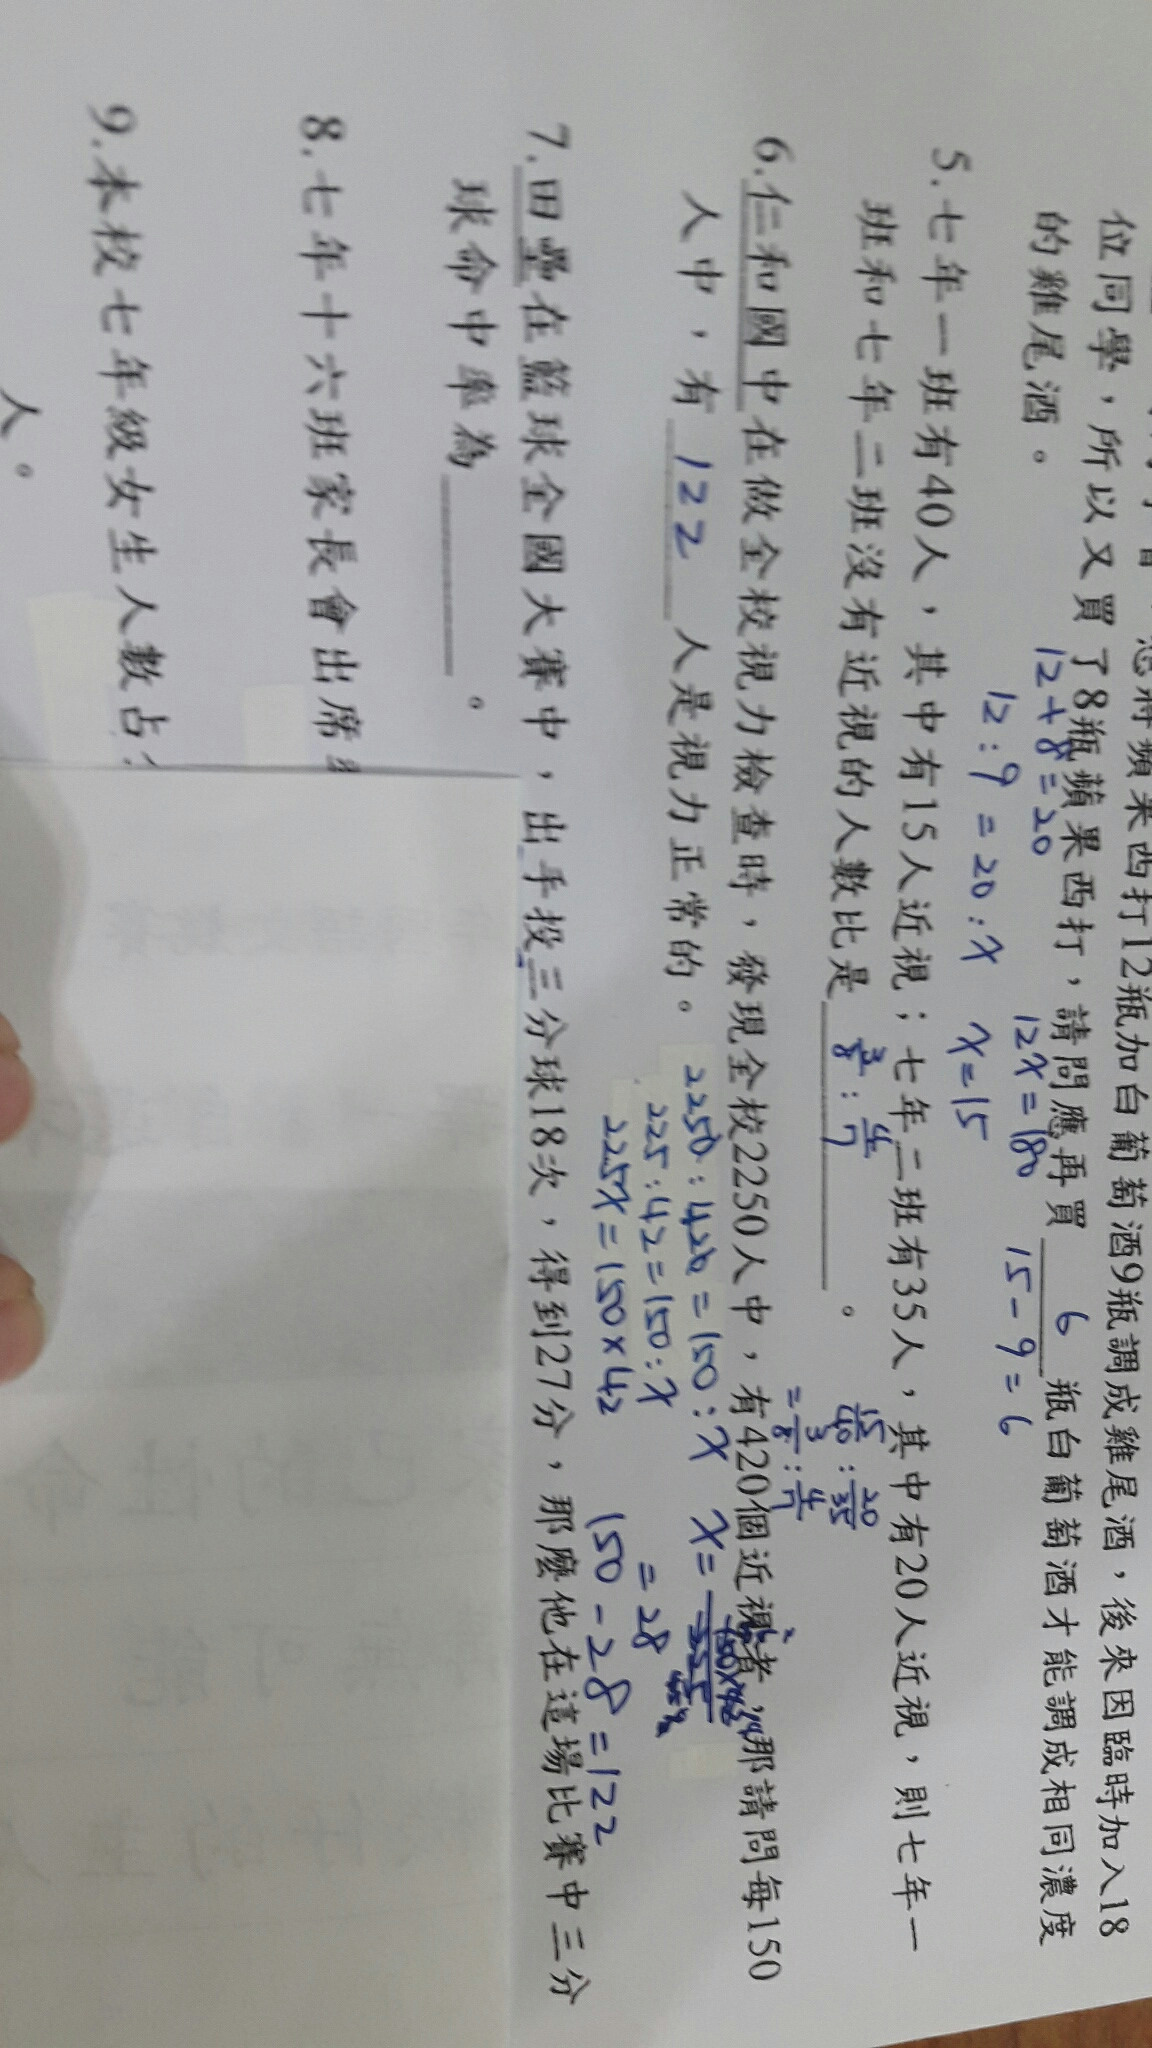 位同學,所以又買了8瓶蘋果西打,請問應再買 6 瓶白葡萄酒才能調成相同濃度
的雞尾酒。
12+8=20
12:9=20:x
12x=180
x=15
15-9=6
5.七年一班有40人,其中有15人近視;七年二班有35人,其中有20人近視,則七年一
班和七年二班沒有近視的人數比是 3/8:4/7 。
15/40:20/35
=3/8:4/7
6.仁和國中在做全校視力檢查時,發現全校2250人中,有420個近視者,那請問每150
人中,有 122 人是視力正常的。
2250:420=150:x
225:42=150:x
225x=150×42
x=
=28
150-28=122
7.田壘在籃球全國大賽中,出手投三分球18次,得到27分,那麼他在這場比賽中三分
球命中率為________。
8.七年十六班家長會出席
9.本校七年級女生人數占
人。